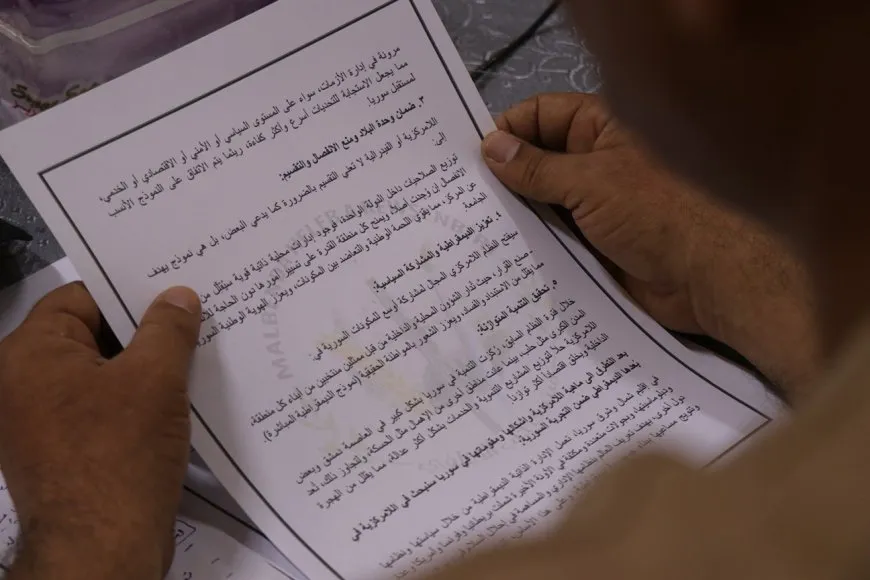 مرونة في إدارة الأزمات، سواء على المستوى السياسي أو الأمني أو الاقتصادي أو الخدمي،
مما يجعل الاستجابة للتحديات أسرع وأكثر كفاءة، ريثما يتم الاتفاق على النموذج الأنسب
لمستقبل سوريا.
٣. ضمان وحدة البلاد ومنع الانفصال والتقسيم:
اللامركزية أو الفيدرالية لا تعني التقسيم بالضرورة كما يدعي البعض، بل هي نموذج يهدف
إلى:
توزيع الصلاحيات داخل الدولة الواحدة، لوجود إدارات محلية ذاتية قوية سيقلل من
الانفصال إن وجدت أصلاً، ويمنح كل منطقة القدرة على تسيير أمورها دون الحاجة
عن المركز، مما يقوي اللحمة الوطنية والتعاضد بين المكونات، ويعزز الهوية الوطنية السورية
الجامعة.
٤. تعزيز الديمقراطية والمشاركة السياسية:
سيفتح النظام اللامركزي المجال لمشاركة أوسع للمكونات السورية في:
- صنع القرار، حيث تدار الشؤون المحلية والداخلية من قبل ممثلين منتخبين من أبناء كل منطقة،
مما يقلل من الاستبداد والفساد، ويعزز الشعور بالمواطنة الحقيقية (نموذج الديمقراطية المباشرة).
٥. تحقيق التنمية المتوازنة:
خلال فترة النظام السابق، ركزت التنمية في سوريا بشكل كبير في العاصمة دمشق وبعض
المدن الكبرى مثل حلب، بينما عانت مناطق أخرى من الإهمال مثل الحسكة، ولتجاوز ذلك، تعد
اللامركزية حلاً لتوزيع المشاريع التنموية والخدمات بشكل أكثر عدالة، مما يقلل من الهجرة
الداخلية ويخلق اقتصاداً أكثر توازناً
بعد التطرق إلى ماهية اللامركزية وأشكالها ومقوماتها في سوريا سنبحث في اللامركزية في
بعدها الديمقراطي ضمن التجربة السورية.
في إقليم شمال وشرق سوريا، تعمل الإدارة الذاتية الديمقراطية من خلال سياستها ونظامها